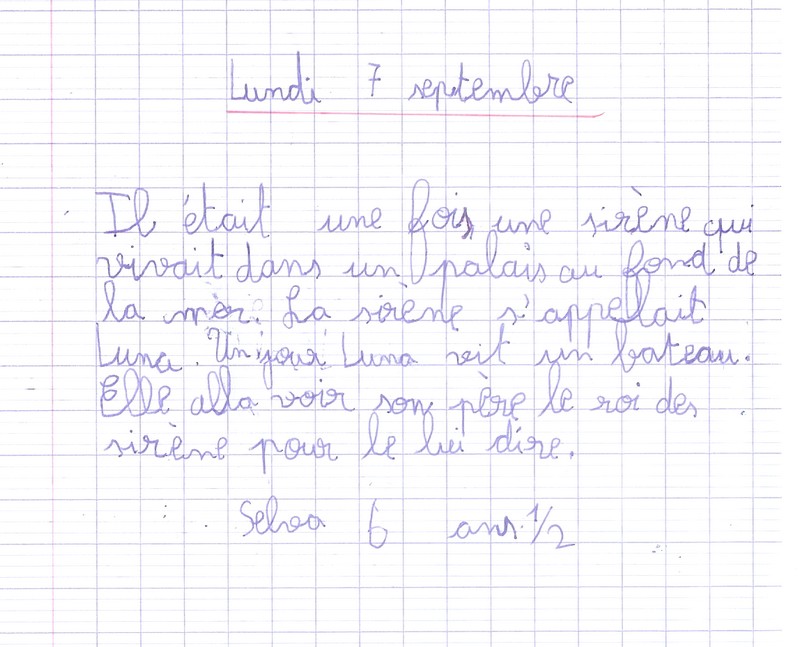 Lundi 7 septembre
Il était une fois, une sirène qui
vivait dans un palais au fond de
la mèr. La sirène s'appellait
Luna. Un jour Luna vit un bateau.
Elle alla voir son père le roi des
sirène pour le lui dire.
6 ans 1/2